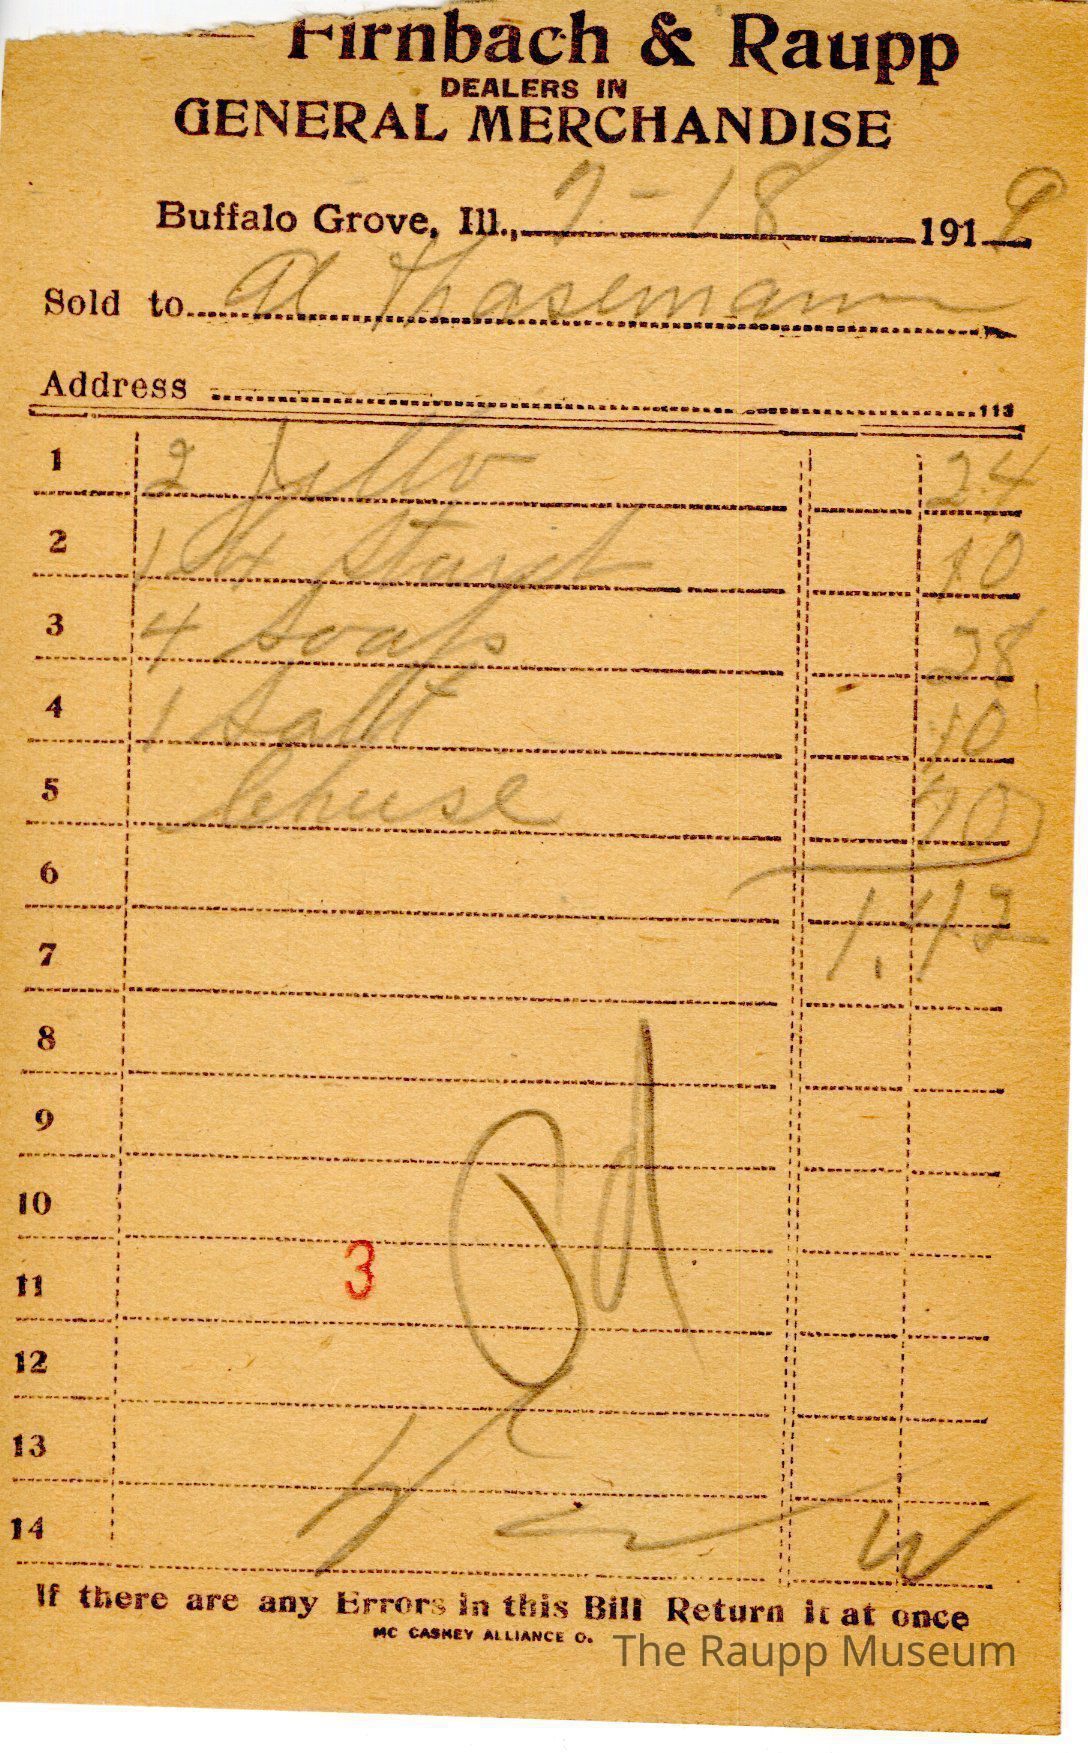 Firnbach & Raupp
DEALERS IN
GENERAL MERCHANDISE
Buffalo Grove, Ill., 7-18 1919
Sold to Al Thasemann
Address 113
1 2 Jello 24
2 1 10
3 4 Soaps 28
4 1 Salt 10
5 Cheese 70
6 1.42
7
8
9
10
11 3
12
13
14
Pd
If there are any Errors in this Bill Return it at once
MC CASKEY ALLIANCE O.
The Raupp Museum